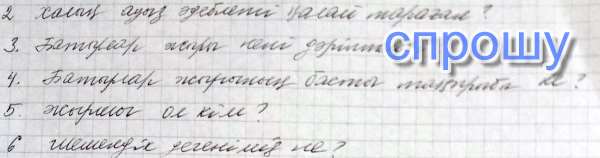 2 халық ауыз әдебиеті қалай тараған?
3. Батырлар жыры нені дәріптейді
спрошу
4. Батырлар жырының басты тақырыбы не?
5. жыршы ол кім?
6 шешендік дегеніміз не?